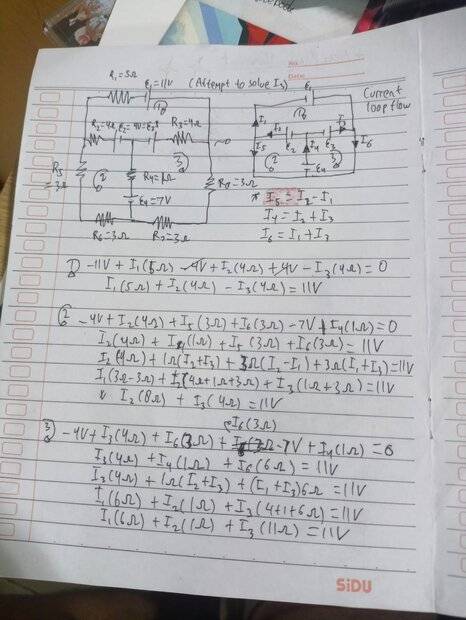 No.
Date:
R₁=5Ω
ε₁=11V (Attempt to solve I₃)
R₂=4Ω ε₂=4V=ε₃ R₃=4Ω
R₅=3Ω
R₄=1Ω
ε₄=7V
R₈=3Ω
R₆=3Ω R₇=3Ω
Current loop flow
* I₅=I₂-I₁
I₄=I₂+I₃
I₆=I₁+I₃
1) -11V + I₁(5Ω) -4V + I₂(4Ω) +4V - I₃(4Ω) = 0
I₁(5Ω) + I₂(4Ω) - I₃(4Ω) = 11V
2) -4V + I₂(4Ω) + I₅(3Ω) + I₆(3Ω) - 7V + I₄(1Ω) = 0
I₂(4Ω) + I₄(1Ω) + I₅(3Ω) + I₆(3Ω) = 11V
I₂(4Ω) + 1Ω(I₂+I₃) + 3Ω(I₂-I₁) + 3Ω(I₁+I₃) = 11V
I₁(3Ω-3Ω) + I₂(4Ω+1Ω+3Ω) + I₃(1Ω+3Ω) = 11V
I₂(8Ω) + I₃(4Ω) = 11V
I₆(3Ω)
3) -4V + I₃(4Ω) + I₆(3Ω) + -7V + I₄(1Ω) = 0
I₃(4Ω) + I₄(1Ω) + I₆(6Ω) = 11V
I₃(4Ω) + 1Ω(I₂+I₃) + (I₁+I₃)6Ω = 11V
I₁(6Ω) + I₂(1Ω) + I₃(4+1+6Ω) = 11V
I₁(6Ω) + I₂(1Ω) + I₃(11Ω) = 11V
SiDU